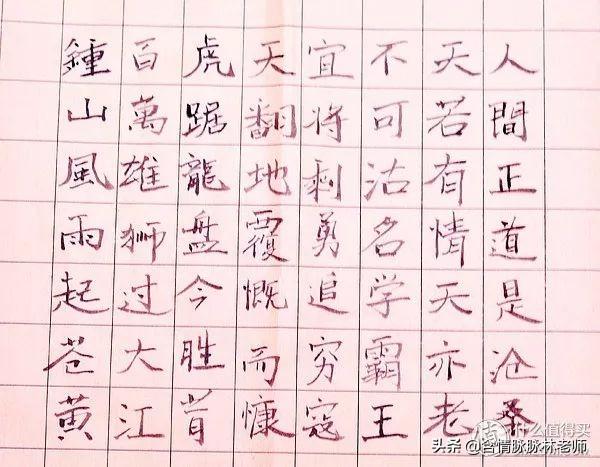 鍾山風雨起苍黄
百萬雄狮过大江
虎踞龍盘今胜昔
天翻地覆慨而慷
宜将剩勇追穷寇
不可沽名学霸王
天若有情天亦老
人間正道是沧桑
什么值得买
头条 @含情脉脉林老师